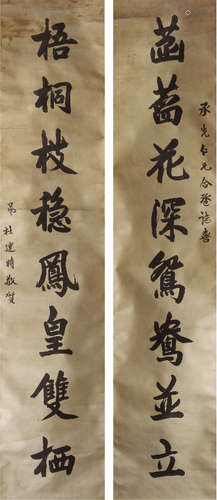 承先仁兄合卺誌喜
菡萏花深鴛鴦並立
梧桐枝穩鳳皇雙栖
弟杜建時敬賀